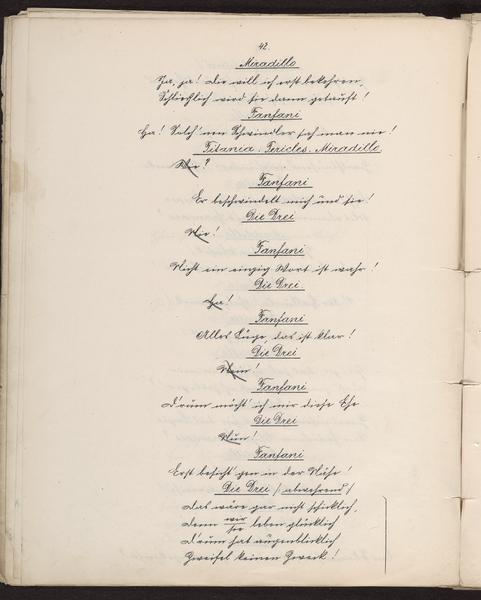 42.
Miradillo
Ja, ja! Die will ich erst bekehren,
Schließlich wird sie dann getauft!
Fanfani
Ha! Solch' nen Schwindler sah man nie!
Titania. Pericles. Miradillo.
Wie?
Fanfani
Er beschwindelt mich und sie!
Die Drei
Wie!
Fanfani
Nicht ein einzig Wort ist wahr!
Die Drei.
Ha!
Fanfani
Alles Lüge, das ist klar!
Die Drei
Nein!
Fanfani
D'rum möcht' ich mir diese Ehe
Die Drei
Nun!
Fanfani
Erst besicht'gen in der Nähe!
Die Drei /: abwehrend :/
Das wäre gar nicht schicklich,
Denn wir leben glücklich
sie
D'rum hat augenblicklich
Zweifel keinen Zweck!